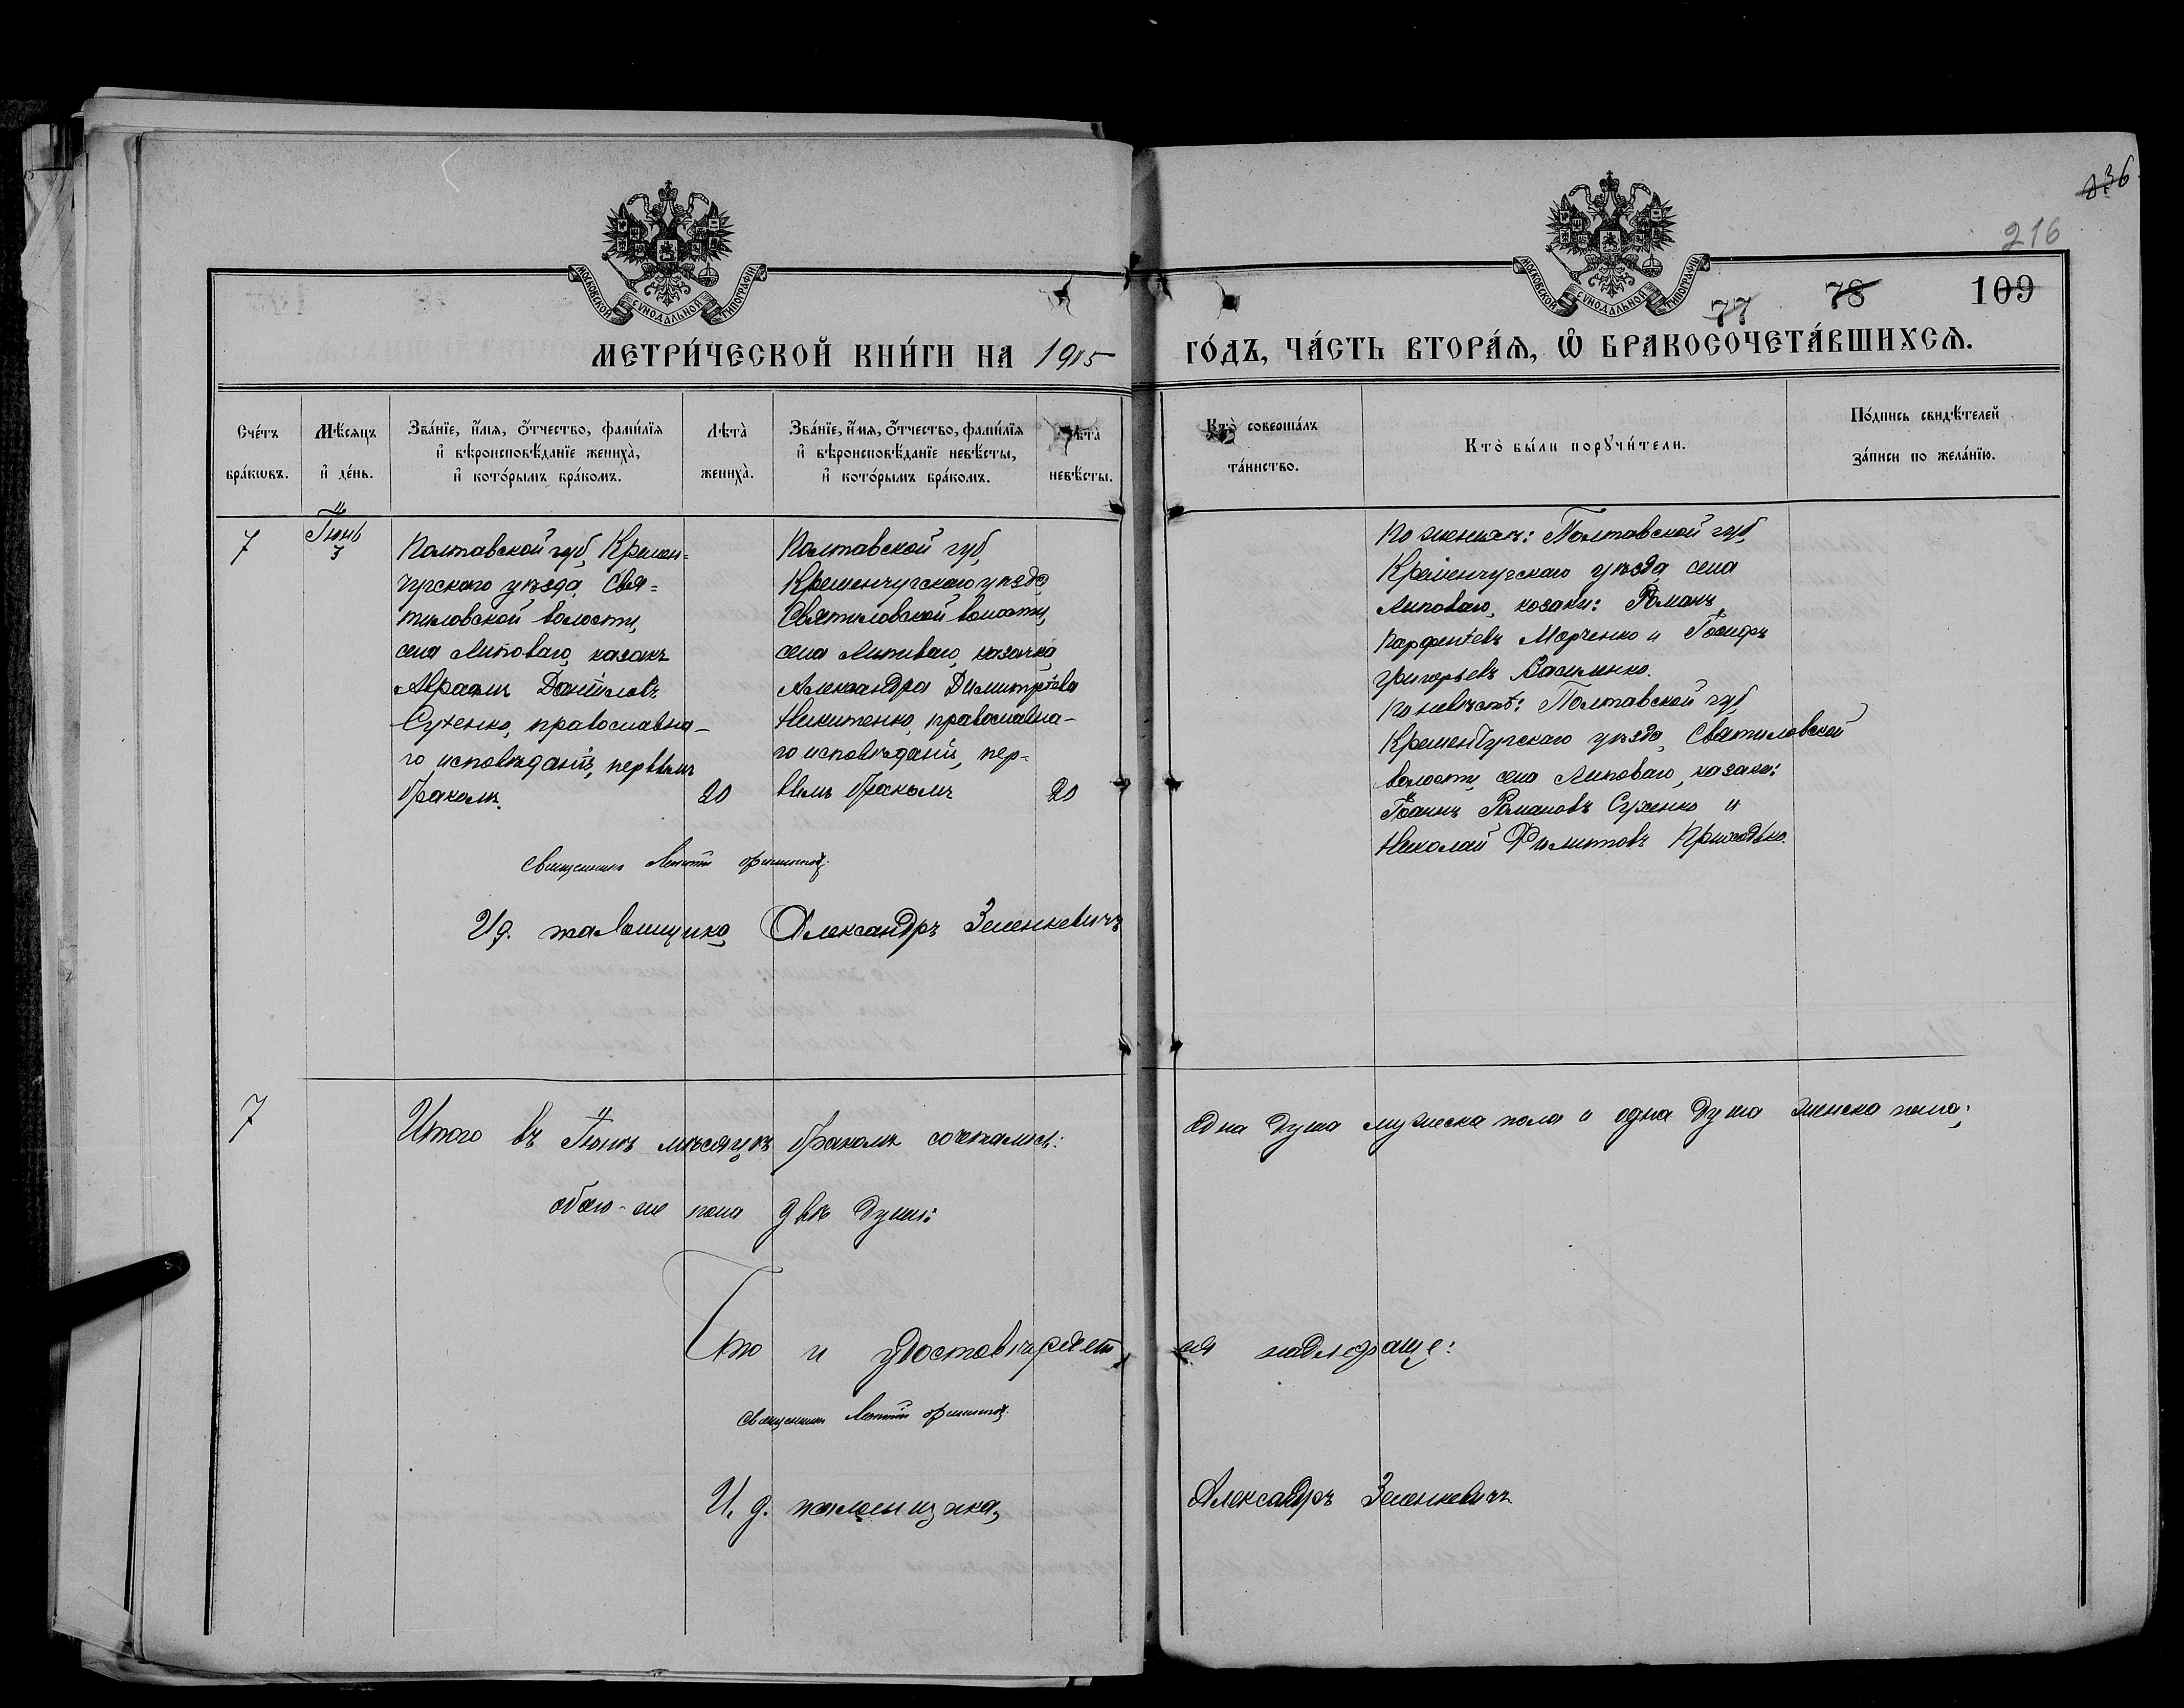 236
216
МОСКОВСКОЙ СѴНОДАЛЬНОЙ ТИПОГРАФІИ
МОСКОВСКОЙ СѴНОДАЛЬНОЙ ТИПОГРАФІИ
77 78 109
МЕТРИ́ЧЕСКОЙ КНИ́ГИ НА 1915
ГО́ДЪ, ЧА́СТЬ ВТОРА́Ѧ, Ѡ҆ БРАКОСОЧЕТА́ВШИХСѦ.
Сче́тъ бра́кѡвъ.
Мѣ́сяцъ и҆ де́нь.
Зва́нїе, и҆́мя, ѻ҆́тчество, фами́лїя и҆ вѣроисповѣ́данїе жениха̀, и҆ кото́рымъ бра́комъ.
Лѣта̀ жениха̀.
Зва́нїе, и҆́мя, ѻ҆́тчество, фами́лїя и҆ вѣроисповѣ́данїе невѣ́сты, и҆ кото́рымъ бра́комъ.
Лѣта̀ невѣ́сты.
Кто̀ соверша́лъ та́инство.
Кто̀ бы́ли порꙋчи́тели.
По́дпись свидѣ́телей за́писи по жела́нїю.
7
Іюнь
7
Полтавской губ, Кремен=
чугскаго уѣзда, Свя=
тиловской волости,
села Липоваго, казакъ
Авраамъ Даніиловъ
Сухенко, православна-
го исповѣданія, первымъ
бракомъ.
20
Полтавской губ,
Кременчугскаго уѣзда,
Святиловской волости,
села Липоваго, казачка
Александра Димитріева
Никитенко, православна-
го исповѣданія, пер-
вымъ бракомъ
20
По женихѣ: Полтавской губ,
Кременчугскаго уѣзда села
Липоваго, козаки: Романъ
Парфеніевъ Марченко и Іосифъ
Григорьевъ Василенко.
По невѣстѣ: Полтавской губ,
Кременчугскаго уѣзда, Святиловской
волости, села Липоваго, казаки:
Іоаннъ Романовъ Сухенко и
Николай Филиповъ Приходько.
Священникъ
И д. псаломщика Александръ Зеленкевичъ
7
Итого въ Іюнѣ мѣсяцѣ бракомъ сочетались: одна душа мужеска пола и одна душа женска пола;
обоего-же пола двѣ души:
Что и удостовѣряет ся надлежаще:
Священникъ
И, д. псаломщика, Александръ Зеленкевичъ